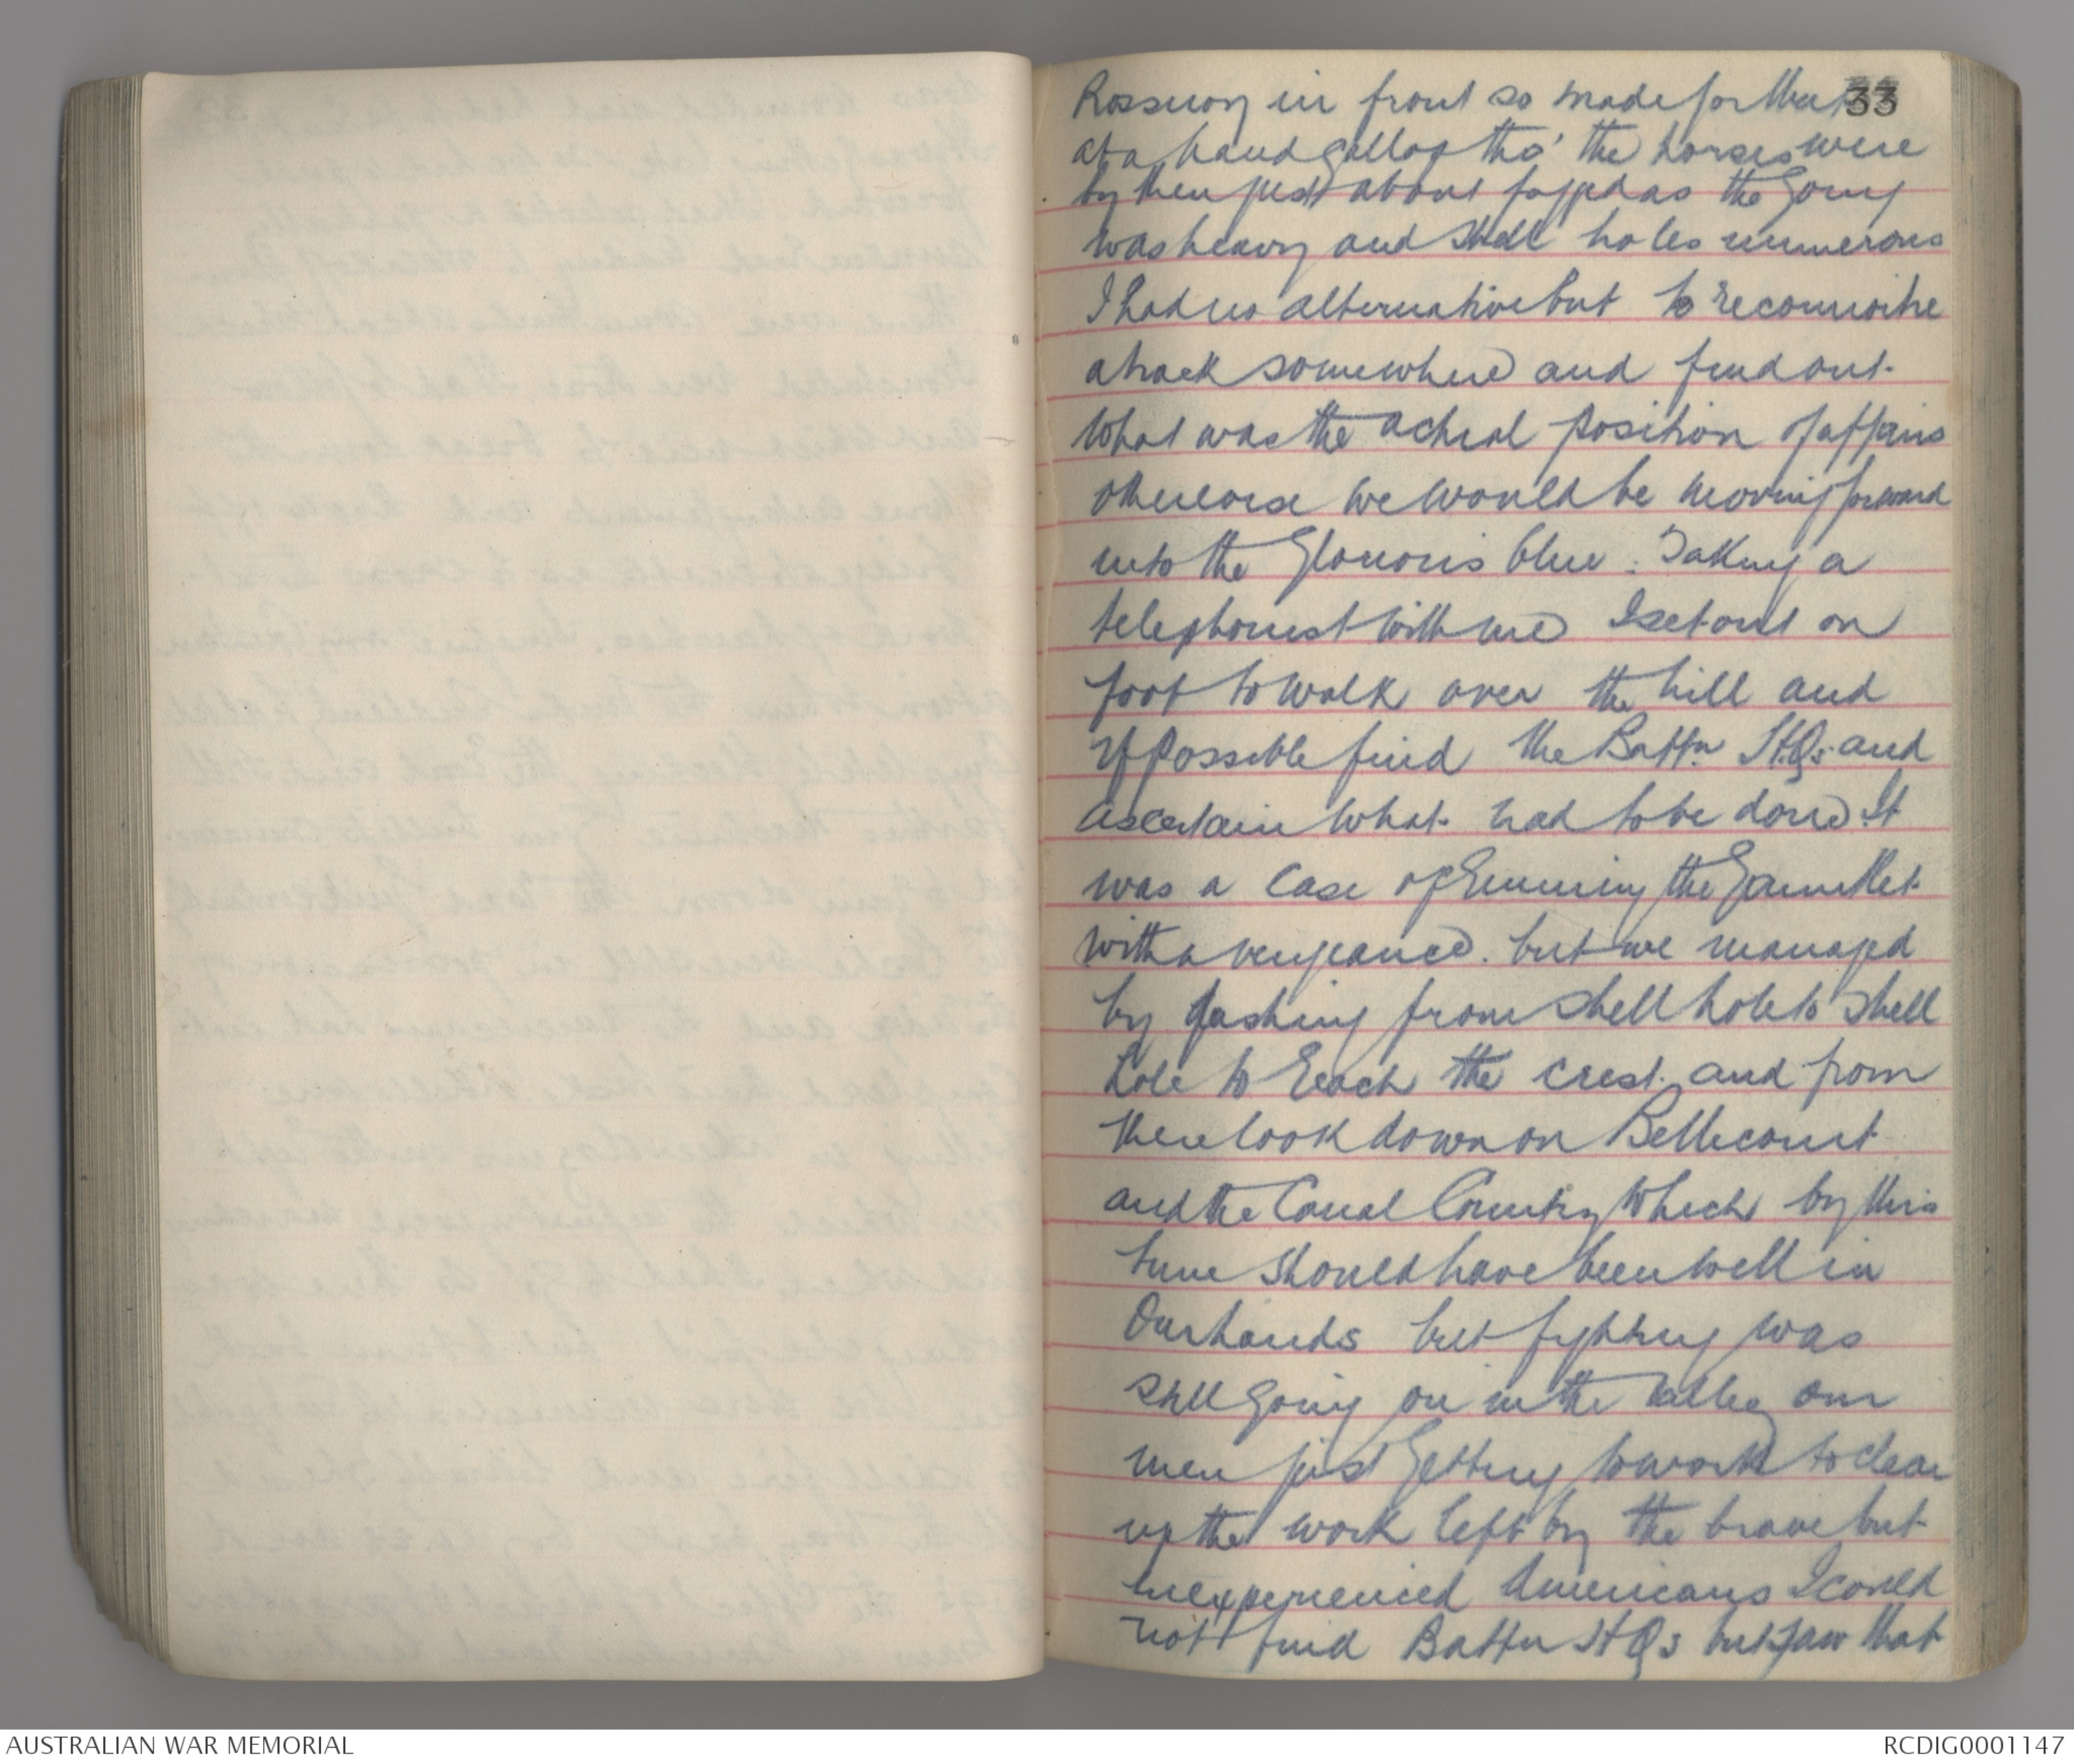 33
Rossnoy in front so made for that
at a hand gallop tho' the horses were
by then just about fagged as the going
was heavy and shell holes numerous
I had no alternative but to reconnoitre
a track somewhere and find out
What was the actual position of affairs
otherwise we would be moving forward
into the Glorious blue. Taking a
telephonist with me I set out on
foot to walk over the hill and
if possible find the Battn H.Qs. and
ascertain what had to be done. It
was a case of running the Gauntlet
with a vengeance. but we managed
by dashing from shell hole to shell
hole to reach the crest. and from
there look down on Bellicourt
and the Canal Country which by this
time should have been well in
Our hands but fighting was
still going on in the valley our
men just getting to work to clear
up the work left by the brave but
inexperienced Americans I could
not find Battn HQs but saw that
AUSTRALIAN WAR MEMORIAL
RCDIG0001147